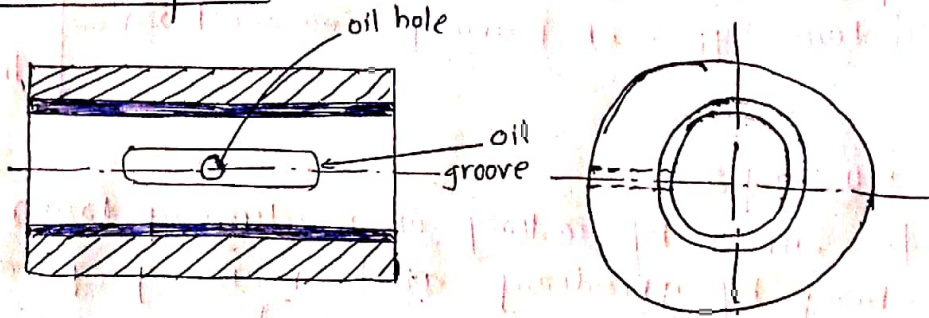 oil hole
oil
groove